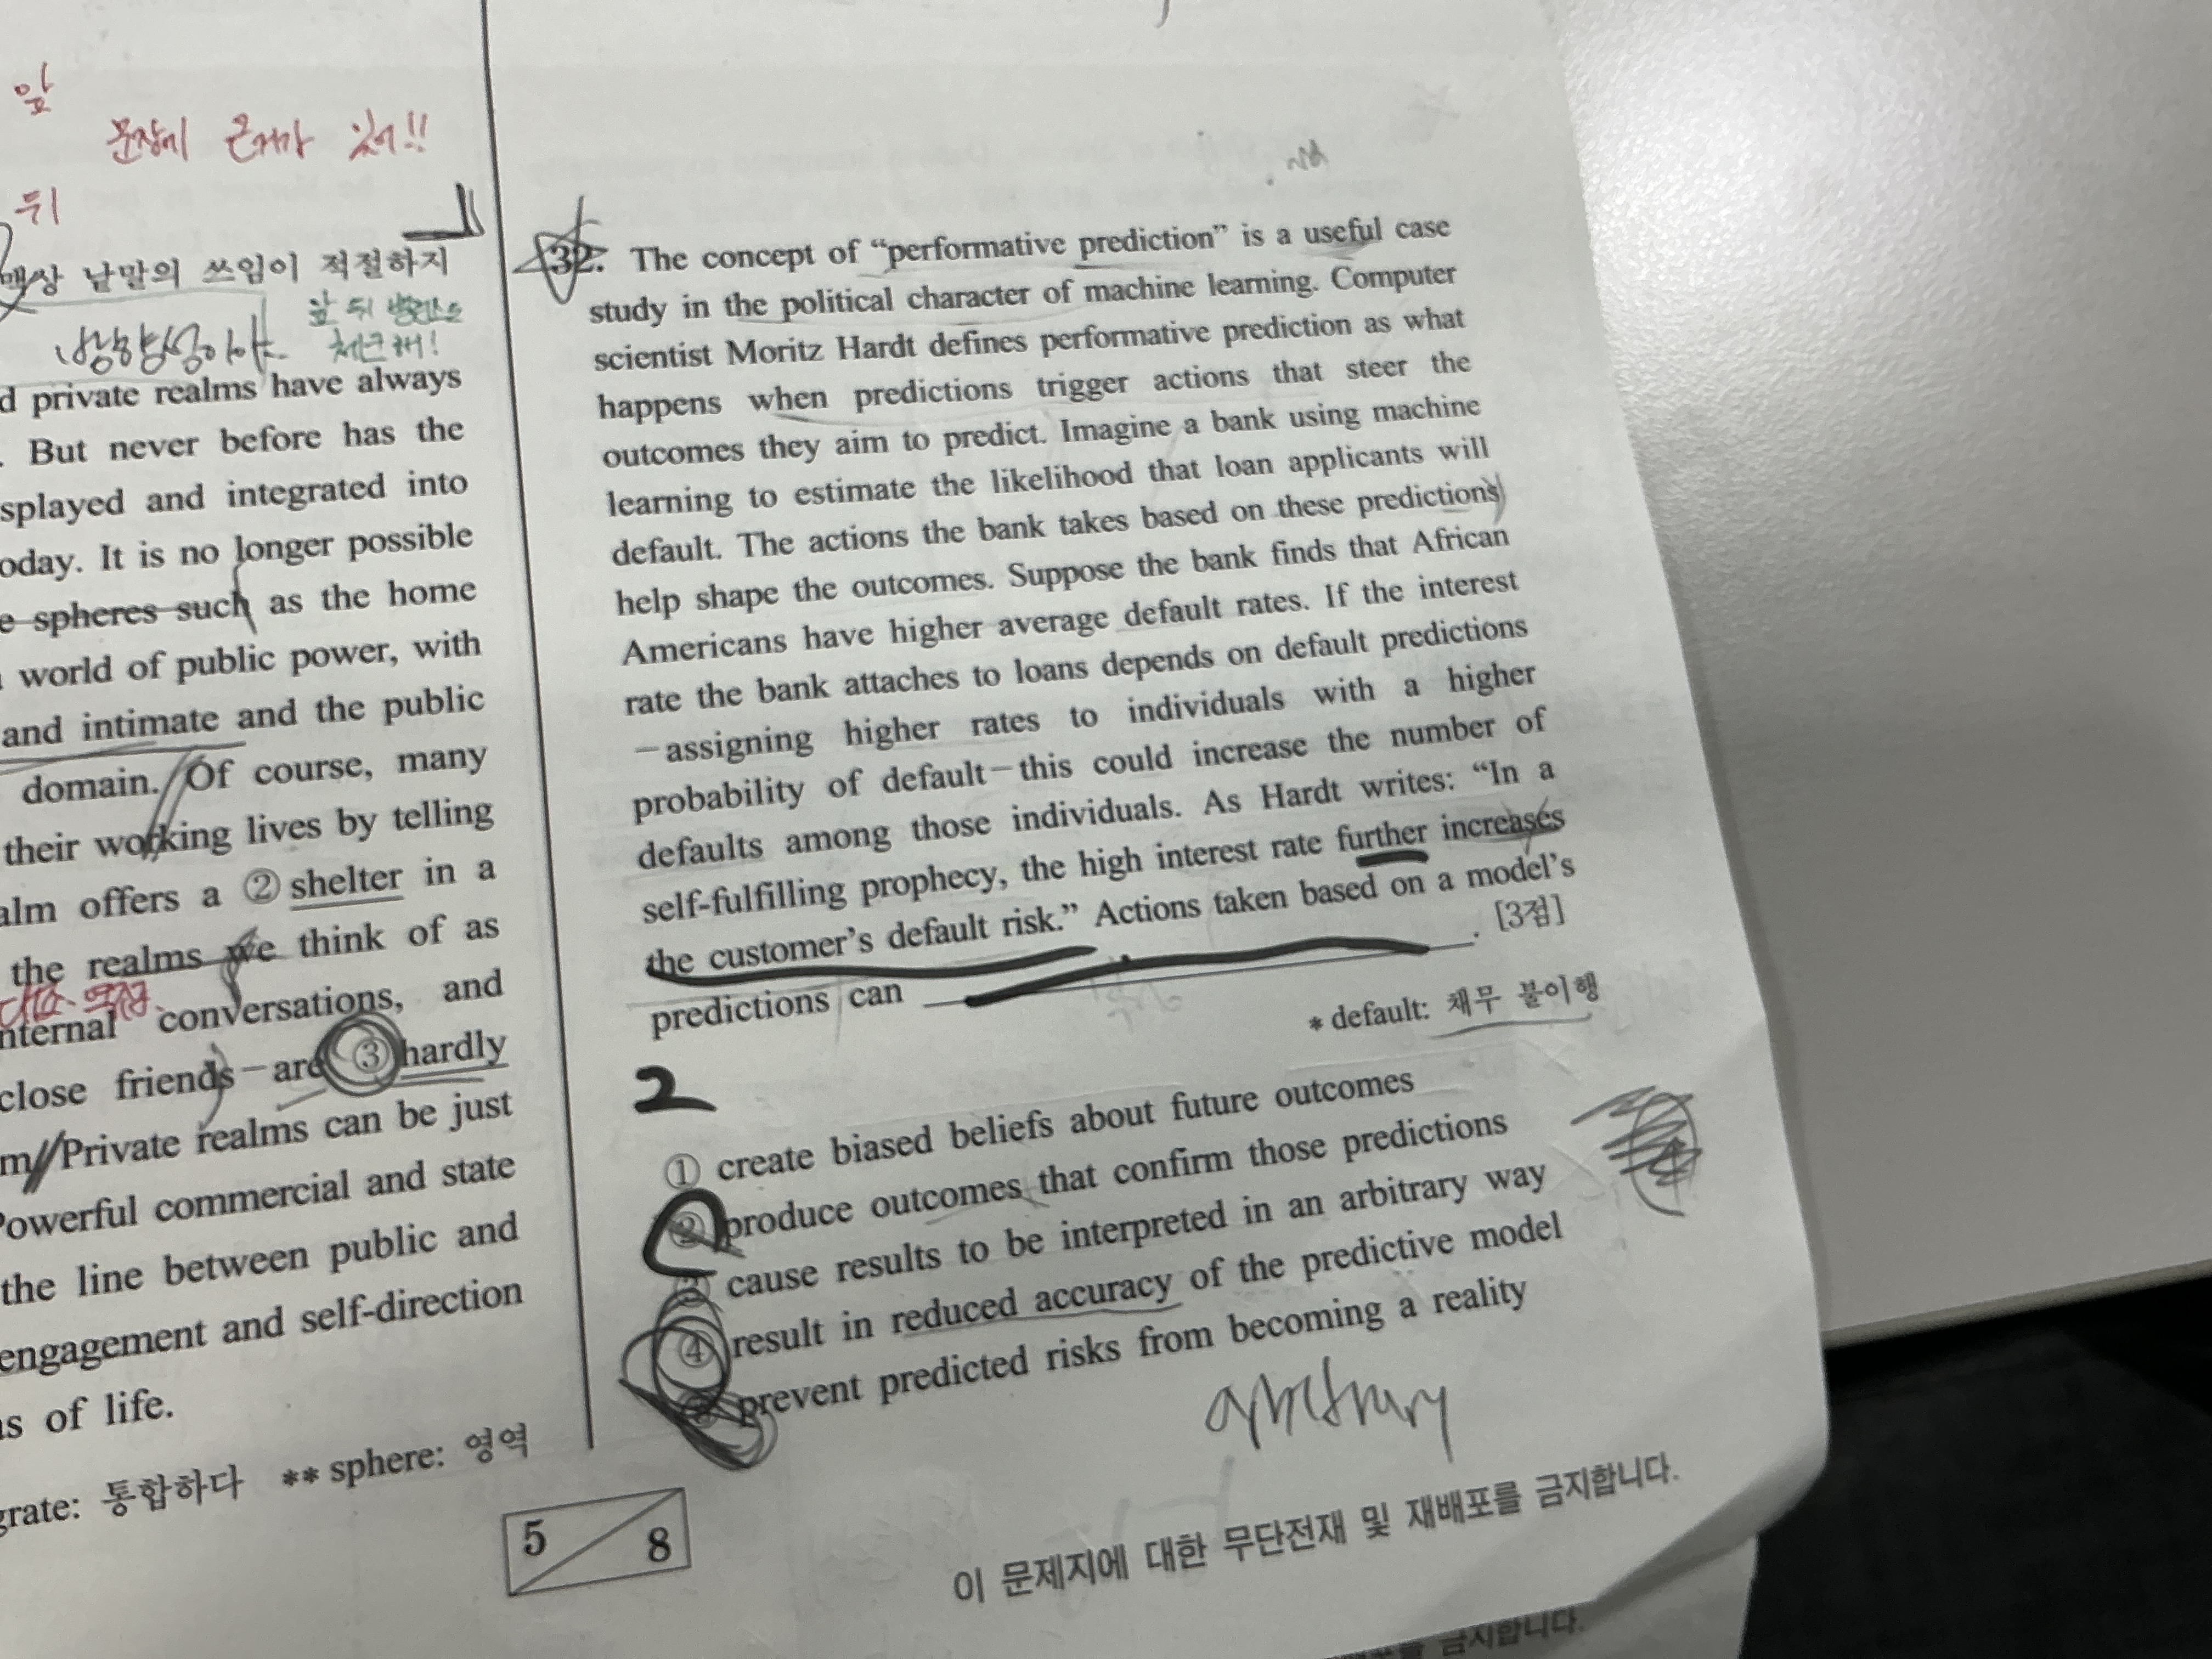 앞
문장에 근거가 있어!!
뒤
상 낱말의 쓰임이 적절하지
앞 뒤
체크해!
d private realms have always
. But never before has the
splayed and integrated into
oday. It is no longer possible
e spheres such as the home
world of public power, with
and intimate and the public
domain. Of course, many
their working lives by telling
alm offers a ② shelter in a
the realms we think of as
nternal conversations, and
close friends—are ③ hardly
m. Private realms can be just
Powerful commercial and state
the line between public and
engagement and self-direction
as of life.
grate: 통합하다 ** sphere: 영역
32. The concept of “performative prediction” is a useful case
study in the political character of machine learning. Computer
scientist Moritz Hardt defines performative prediction as what
happens when predictions trigger actions that steer the
outcomes they aim to predict. Imagine a bank using machine
learning to estimate the likelihood that loan applicants will
default. The actions the bank takes based on these predictions
help shape the outcomes. Suppose the bank finds that African
Americans have higher average default rates. If the interest
rate the bank attaches to loans depends on default predictions
—assigning higher rates to individuals with a higher
probability of default—this could increase the number of
defaults among those individuals. As Hardt writes: “In a
self-fulfilling prophecy, the high interest rate further increases
the customer’s default risk.” Actions taken based on a model’s
predictions can ______. [3점]
* default: 채무 불이행
2
① create biased beliefs about future outcomes
② produce outcomes that confirm those predictions
③ cause results to be interpreted in an arbitrary way
④ result in reduced accuracy of the predictive model
⑤ prevent predicted risks from becoming a reality
arbitrary
5 8
이 문제지에 대한 무단전재 및 재배포를 금지합니다.
금지합니다.